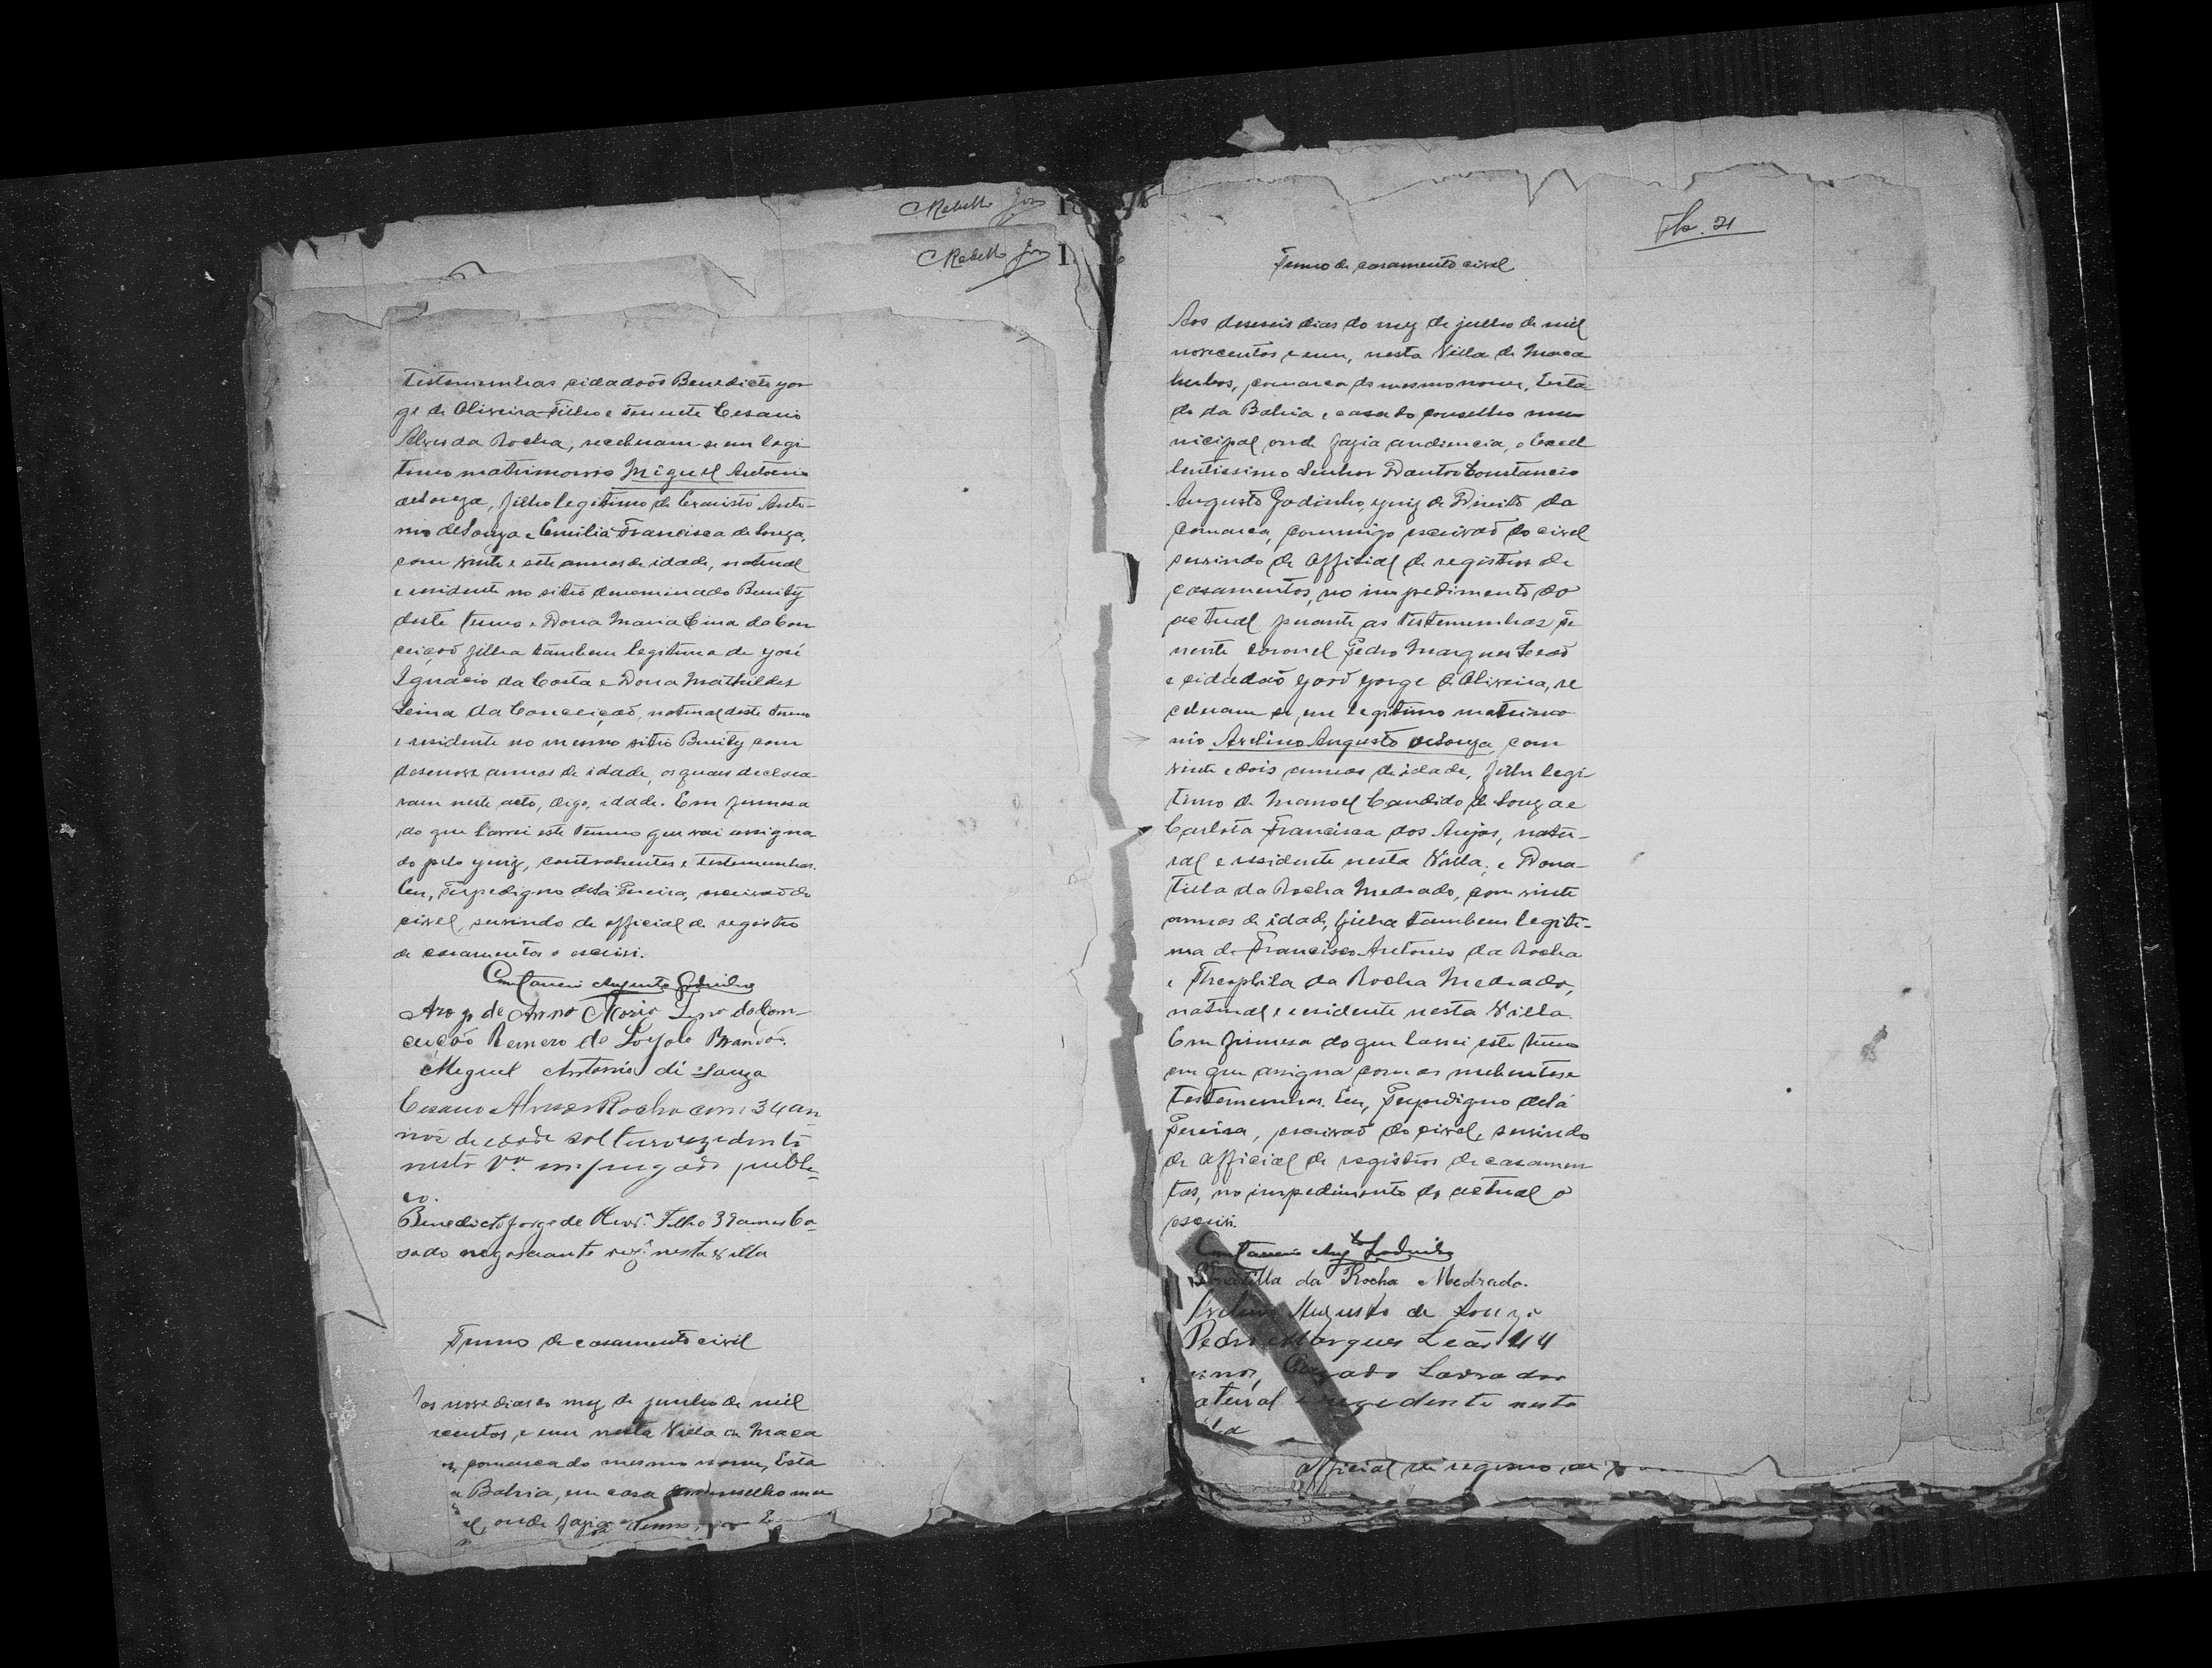 Rebello Jor
Rebello Jor
Testemunhas cidadãos Benedicto Jor
ge de Oliveira Filho e Tenente Cesario
Alves da Rocha, receberam-se em legi
timo matrimonio Miguel Antonio
de Souza, filho legitimo de Evaristo Anto-
nio de Souza e Emilia Francisca de Souza,
com vinte e sete annos de idade, natural
e residente no sitio denominado Burity
deste termo e Dona Maria Lina da Con
ceição filha tambem legitima de José
Ignacio da Costa e Dona Mathildes
Leina da Conceição, natural deste termo
e residente no mesmo sitio Burity com
desenove annos de idade, os quaes declara
ram neste acto, digo, idade. Em firmesa
do que lavrei este termo que vai assigna
do pelo juiz, contrahentes e testemunhas.
Eu, Perpedigno de Sá Pereira, escrivão do
civel, servindo de official de registro
de casamentos o escrivi.
Constancio Augusto Godinho
Arogo de Anna Maria Lina da Con-
ceição Ramero de Loyola Brandão.
Miguel Antonio di Souza
Cesario Alves Rocha com 34 an
nos de edade solteiro rezidente
nesta Va. empregado publi-
co.
Benedicto Jorge de Olivra. Filho 39 annos Ca-
sado negosciante rezi. nesta villa
Termo de casamento civil
os nove dias do mez de junho de mil
centos e um nesta Villa de Maca
comarca do mesmo nome, Esta
a Bahia, em casa do conselho mu
al, onde fazia
Fls. 21
Termo de casamento civel
Aos deseseis dias do mez de julho de mil
novecentos e um, nesta Villa de Maca
hubas, comarca do mesmo nome, Esta
do da Bahia e casa do conselho mu
nicipal onde fazia audiencia, o Excel
lentissimo Senhor Doutor Constancio
Augusto Godinho, juiz de Direito da
Comarca, commigo escrivão do civel
servindo de official de registros de
casamentos, no impedimento do
actual perante as testemunhas Te
nente coronel Pedro Marques Leão
e cidadão João Jorge de Oliveira, re
ceberam se, em legitimo matrimo
nio Avelino Augusto de Souza, com
vinte e dois annos de idade, filho legi
timo de Manoel Candido de Souza e
Carlota Francisca dos Anjos, natu-
ral e residente nesta Villa; e Dona-
tilla da Rocha Medrado, com vinte
annos de idade, filha tambem legiti-
ma de Francisco Antonio da Rocha
e Theophila da Rocha Medrado,
natural e residente nesta Villa.
Em firmesa do que lavrei este termo
em que assigna com os nubentes e
testemunhas. Eu, Perpedigno de Sá
Pereira, escrivão do civel, servindo
de official de registros de casamen
tos, no impedimento do actual o
escrivi.
Constancio Augto. Godinho
Donatilla da Rocha Medrado.
Avelino Augusto de Souza
Pedro Marques Leão 44
annos, Cazado Lavrador
atural e rezedente nesta
illa
official de registro de